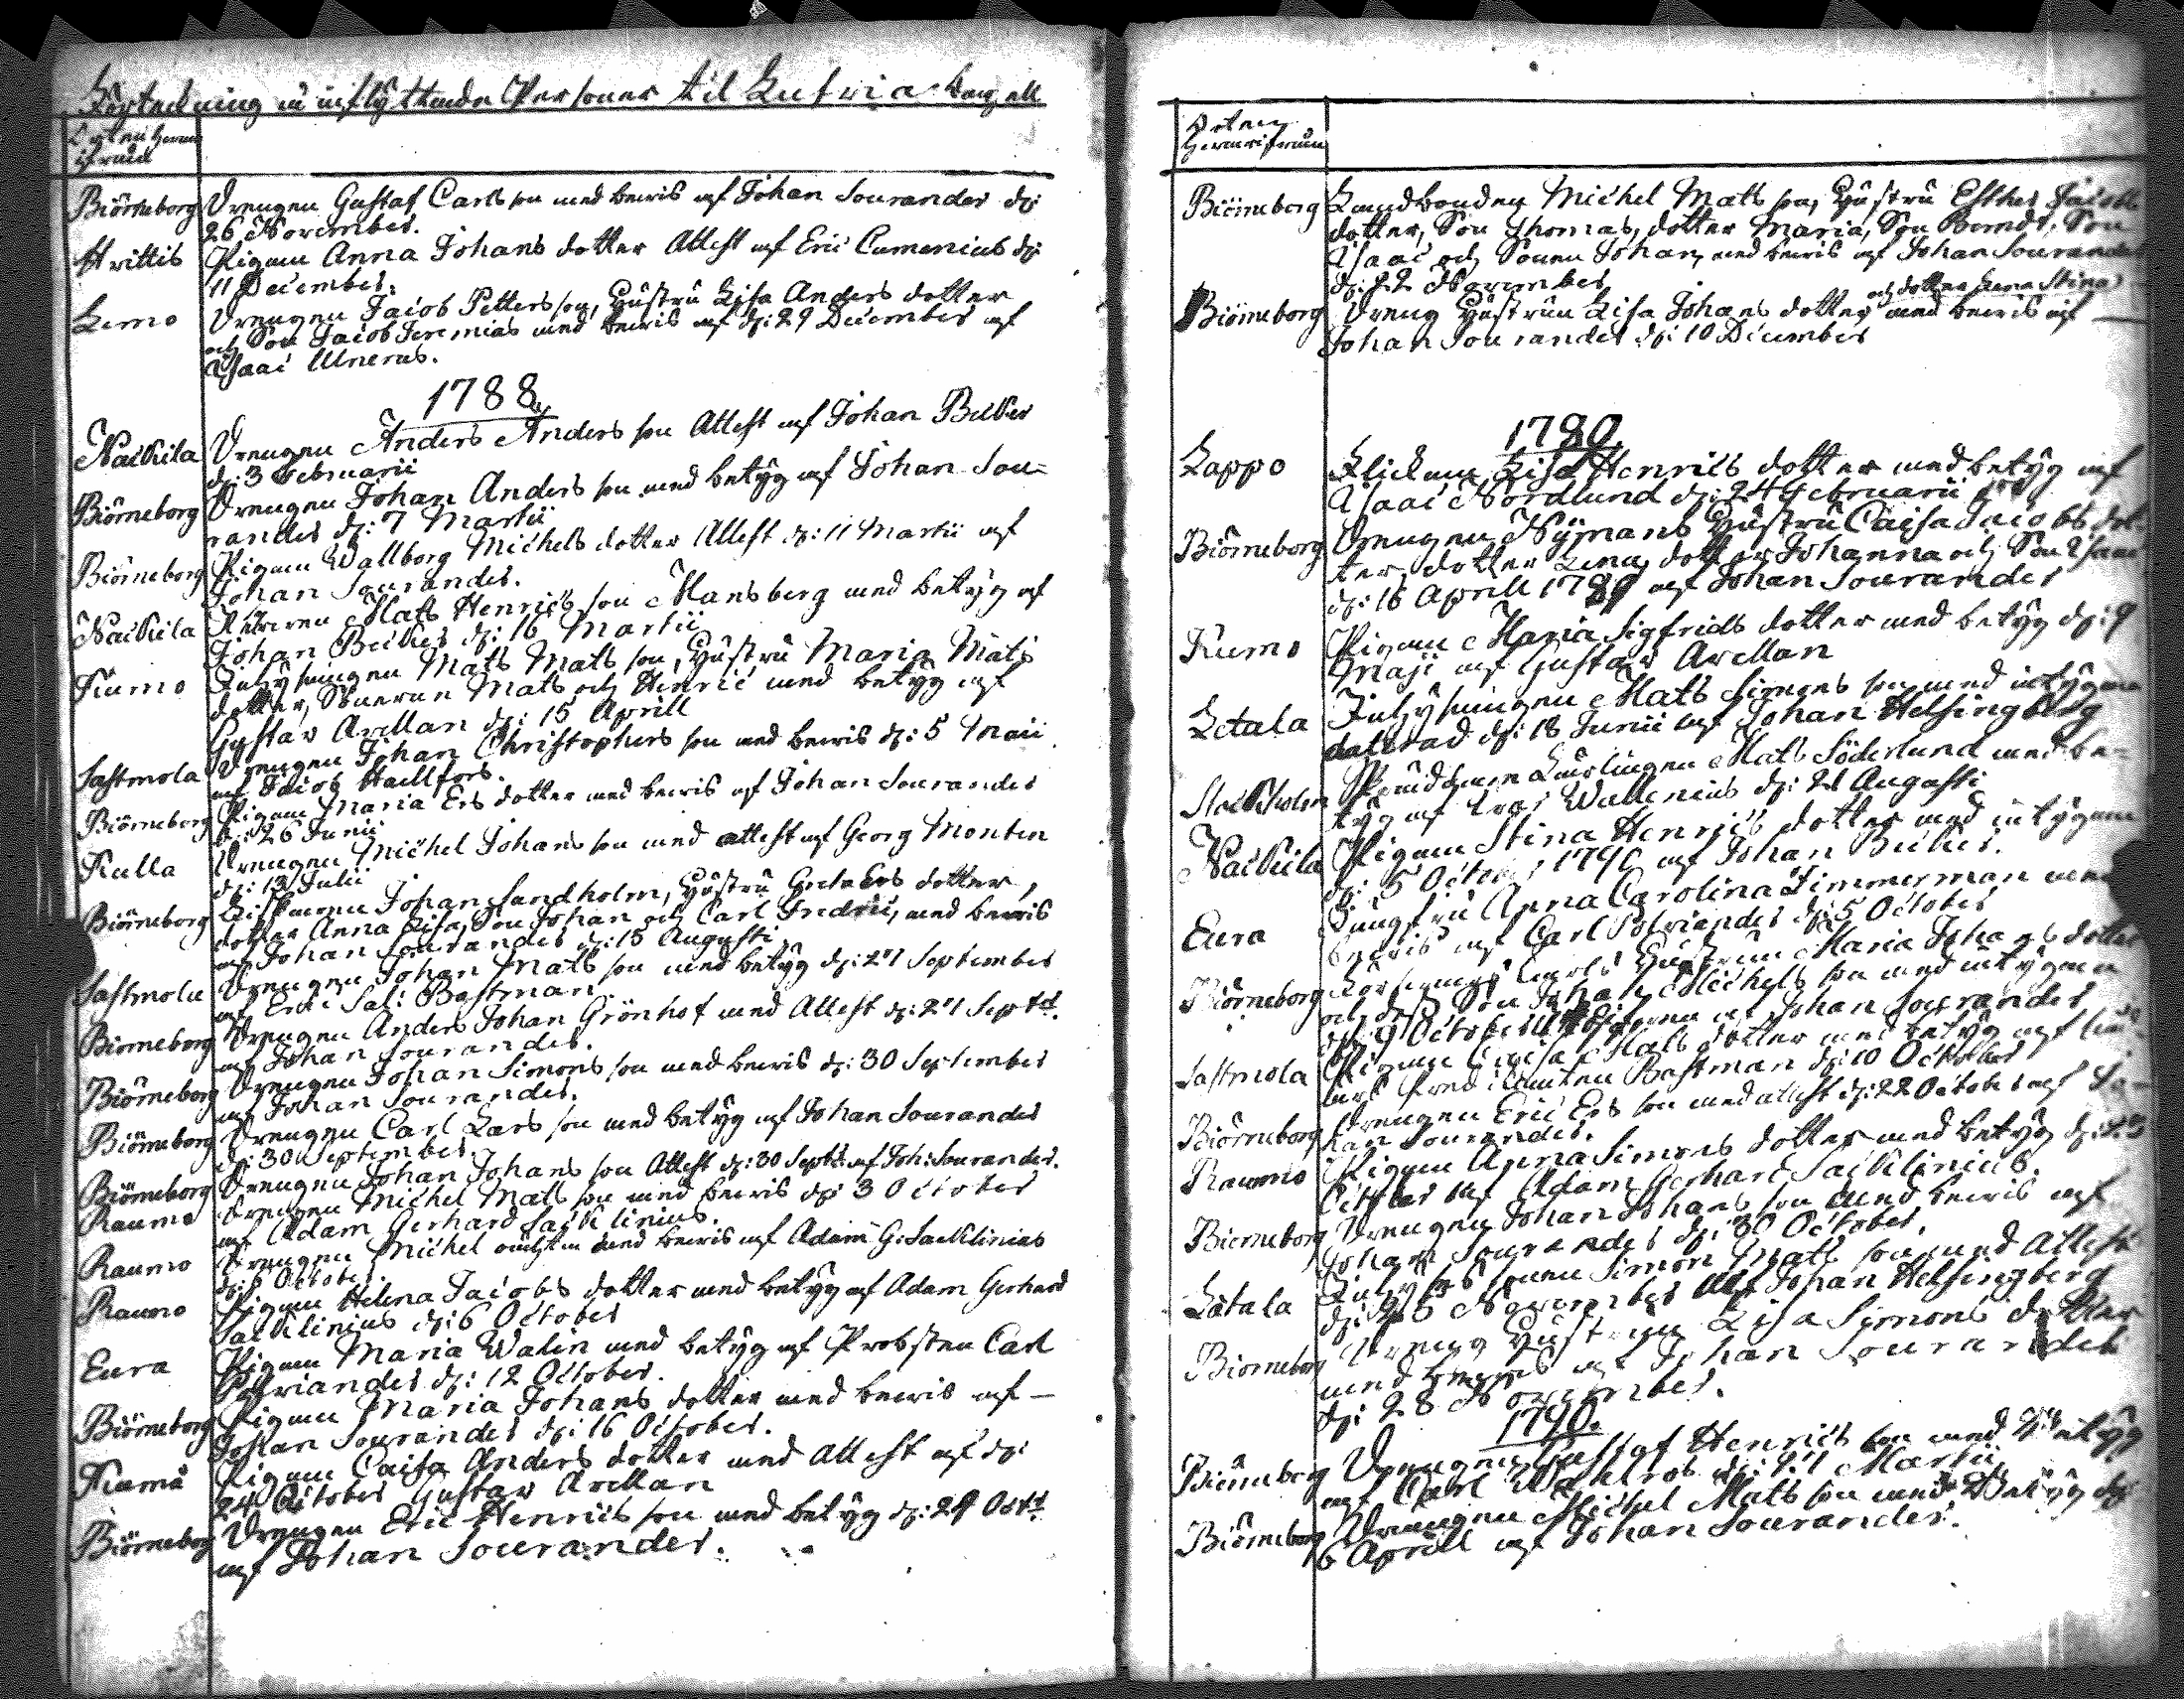 Förteckning på inflyttande Personer til Lutvia Capell
Orten hvarifrån
Biörneborg Drengen Gustaf Carls son med bewis af Johan Sourander d:
26 November.
Hvittis Pigan Anna Johans dotter Attest af Eric Cumenius d:
11 December.
Lemo Drengen Jacob Petters son, Hustru Lisa Anders dotter
och Son Jacob Jeremias med bewis af d: 29 December af
Isaac Unerus.
1788.
Nackila Drengen Anders Anders son Attest af Johan Becker
d: 3 Februarii
Biörneborg Drengen Johan Anders son med betyg af Johan Sou=
rander d: 7 Martii
Biörneborg Pigan Wallborg Michels dotter Attest d: 11 Martii af
Johan Sourander.
Nackila Mats Henrics son Mansberg med betyg af
Johan Becker d: 16 Martii
Kumo Inhysingen Mats Mats son, Hustru Maria Mats
dotter, Sönerne Mats och Henric med betyg af
Gustav Arellan d: 15 Aprill
Sastmola Drengen Johan Christophers son med bewis d: 5 Maii
af Jacob Haellfors.
Biörneborg Pigan Maria Ers dotter med bewis af Johan Sourander
d: 26 Junii
Kulla Drengen Michel Johans son med attest af Georg Monten
d: 13 Julii
Biörneborg Johan Sandholm, Hustru Greta Ers dotter,
dotter Anna Lisa, Son Johan och Carl Fredric, med bewis
af Johan Sourander d: 15 Augusti
Sastmola Drengen Johan Mats son med betyg d: 27 September
af Eric Sal: Bastman
Biorneborg Drengen Anders Johan Grönhof med Attest d: 27 Septbr.
af Johan Sourander.
Biörneborg Drengen Johan Simons son med bewis d: 30 September
af Johan Sourander.
Biörneborg Drengen Carl Lars son med betyg af Johan Sourander
d: 30 September.
Biörneborg Drengen Johan Johans son Attest d: 30 Septb: af Joh: Sourander.
Raumo Drengen Michel Mats son med bewis d: 3 October
af Adam Gerhard Sacklinius.
Raumo Drengen Michel med bewis af Adam G: Sacklinius
d: 6 October.
Raumo Pigan Helena Jacobs dotter med betyg af Adam Gerhard
Sacklinius d: 6 October
Eura Pigan Maria Walin med betyg af Probsten Carl
Polviander d: 12 October.
Biörneborg Pigan Maria Johans dotter med bewis af —
Johan Sourander d: 16 October.
Kumå Pigan Caisa Anders dotter med Attest af d:
24 October Gustav Arellan
Biörneborg Drengen Eric Henrics son med betyg d: 29 Octbr
af Johan Sourander.
Orten hvarifrån
Biörneborg Landbonden Michel Mats son, Hustru Esther Jacobs
dotter, Son Thomas, dotter Maria, Son Berndt, Son
Isaac och Sonen Johan, med bewis af Johan Sourander
d: 22 November
Biörneborg Dreng Hustrun Lisa Johans dotter och dotter Lena Stina med bewis af —
Johan Sourander d: 10 December
1789.
Lappo Flickan Lisa Henrics dotter med betyg af
Isaac Nordlund d: 24 Februarii
Biörneborg Drengen Nymans Hustru Caisa Jacobs dot=
ter, dotter Lena, dotter Johanna och Son Isaac
d: 16 Aprill 1789 af Johan Sourander
Kumo Pigan Maria Sigfrids dotter med betyg d: 9
Maji af Gustav Arellan
Letala Inhysingen Mats Simons son med intygan
daterad d: 18 Junii af Johan Helsingberg
Stockholm Mats Söderlund med be=
tyg af Wallenius d: 21 Augusti
Nackila Pigan Stina Henrics dotter med intygan
d: 5 October 1790 af Johan Becker.
Eura Jungfru Anna Carolina Zimmerman med
bewis af Carl Polviander d: 5 October
Biörneborg Hustrun Maria Johans dotter
och dess Son Johan Michels son med intygan
d: 9 October af Johan Sourander
Sastmola Pigan Caisa Mats dotter med betyg af
Bastman d: 10 October
Biörneborg Drengen Eric Ers son med attest d: 22 October af Jo=
han Sourander.
Raumo Pigan Anna Simons dotter med betyg d: 23
October af Adam Gerhard Sacklinius.
Biorneborg Drengen Johan Johans son med bewis af
Johan Sourander d: 30 October.
Letala Simon Mats son med Attest
d: 25 November af Johan Helsingberg
Biorneborg Dreng Hustrun Lisa Simons dotter
med bewis af Johan Sourander
d: 28 November.
1790.
Biörneborg Drengen Gustaf Henrics son med betyg
af Carl Wahlros d: 27 Martii
Biörneborg Drengen Michel Mats son med betyg d:
6 Aprill af Johan Sourander.